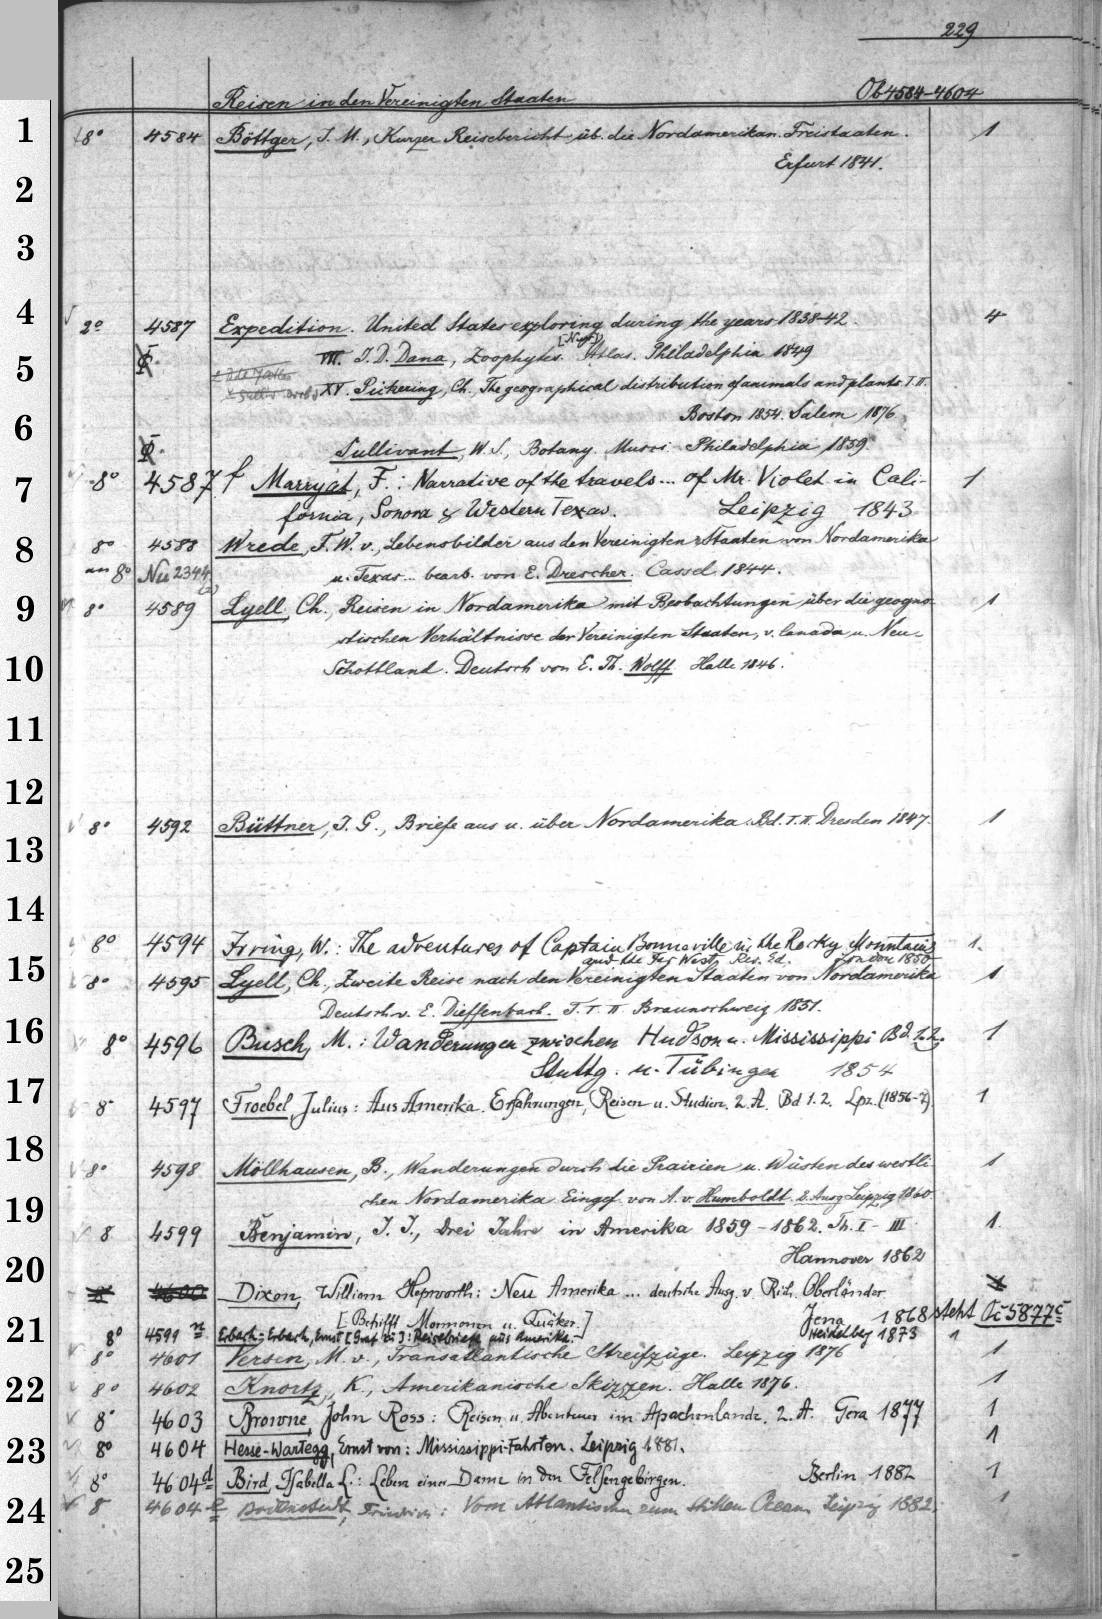 229
Reisen in den Vereinigten Staaten Ob 4584-4604
8° 4584 Böttger, J. M., Kurzer Reisebericht üb. die Nordamerikan. Freistaaten. 1
Erfurt 1841.
2° 4587 Expedition. United States exploring during the years 1838-42. 4
VIII. J. D. Dana, Zoophytes. Atlas. Philadelphia 1849
XV. Pickering, Ch., The geographical distribution of animals and plants. T. II.
Boston 1854. Salem 1876.
Sullivant, W. S., Botany. Musci. Philadelphia 1859.
8° 4587 f Marryat, F.: Narrative of the travels... of Mr. Violet in Cali- 1
fornia, Sonora & Western Texas. Leipzig 1843
8° 4588 Wrede, F. W. v., Lebensbilder aus den Vereinigten Staaten von Nordamerika
an 8° Nu 2344 u. Texas... bearb. von E. Drescher. Cassel 1844.
8° 4589 Lyell, Ch., Reisen in Nordamerika mit Beobachtungen über die geogno- 1
stischen Verhältnisse der Vereinigten Staaten, v. Canada u. Neu-
Schottland. Deutsch von E. Th. Wolff Halle 1846.
8° 4592 Büttner, J. G., Briefe aus u. über Nordamerika. Bd. I. II. Dresden 1847. 1
8° 4594 Irving, W.: The adventures of Captain Bonneville in the Rocky Mountains 1.
and the Far West. Rev. Ed. London 1850
8° 4595 Lyell, Ch., Zweite Reise nach den Vereinigten Staaten von Nordamerika 1
Deutsch v. E. Dieffenbach. T. I II Braunschweig 1851.
8° 4596 Busch, M.: Wanderungen zwischen Hudson u. Mississippi Bd 1.2. 1
Stuttg. u. Tübingen 1854
8° 4597 Froebel, Julius: Aus Amerika. Erfahrungen, Reisen u. Studien. 2. A. Bd 1. 2. Lpz. (1856-7). 1
8° 4598 Möllhausen, B., Wanderungen durch die Prairien u. Wüsten des westli- 1
chen Nordamerika Eingef. von A. v. Humboldt. 2. Ausg Leipzig 1860
8 4599 Benjamin, J. J., Drei Jahre in Amerika 1859-1862. Th. I-III 1.
Hannover 1862
8° 4600 Dixon, William Hepworth: Neu Amerika ... deutsche Ausg. v. Rich. Oberländer. 1
[Betrifft Mormonen u. Quäker.] Jena 1868 steht Oc 5877c
8° 4599 n Erbach-Erbach, Ernst [Graf zu]: Reisebriefe aus Amerika.- Heidelberg 1873 1
8° 4601 Versen, M. v., Transatlantische Streifzüge. Leipzig 1876 1
8° 4602 Knortz, K., Amerikanische Skizzen. Halle 1876. 1
8° 4603 Browne, John Ross: Reisen u. Abenteuer im Apachenlande. 2. A. Gera 1877 1
8° 4604 Hesse-Wartegg, Ernst von: Mississippi-Fahrten. Leipzig 1881. 1
8° 4604d Bird, Isabella L.: Leben einer Dame in den Felsengebirgen. Berlin 1882 1
8 4604 e Bodenstedt, Friedrich: Vom Atlantischen zum stillen Ocean Leipzig 1882. 1
1
2
3
4
5
6
7
8
9
10
11
12
13
14
15
16
17
18
19
20
21
22
23
24
25